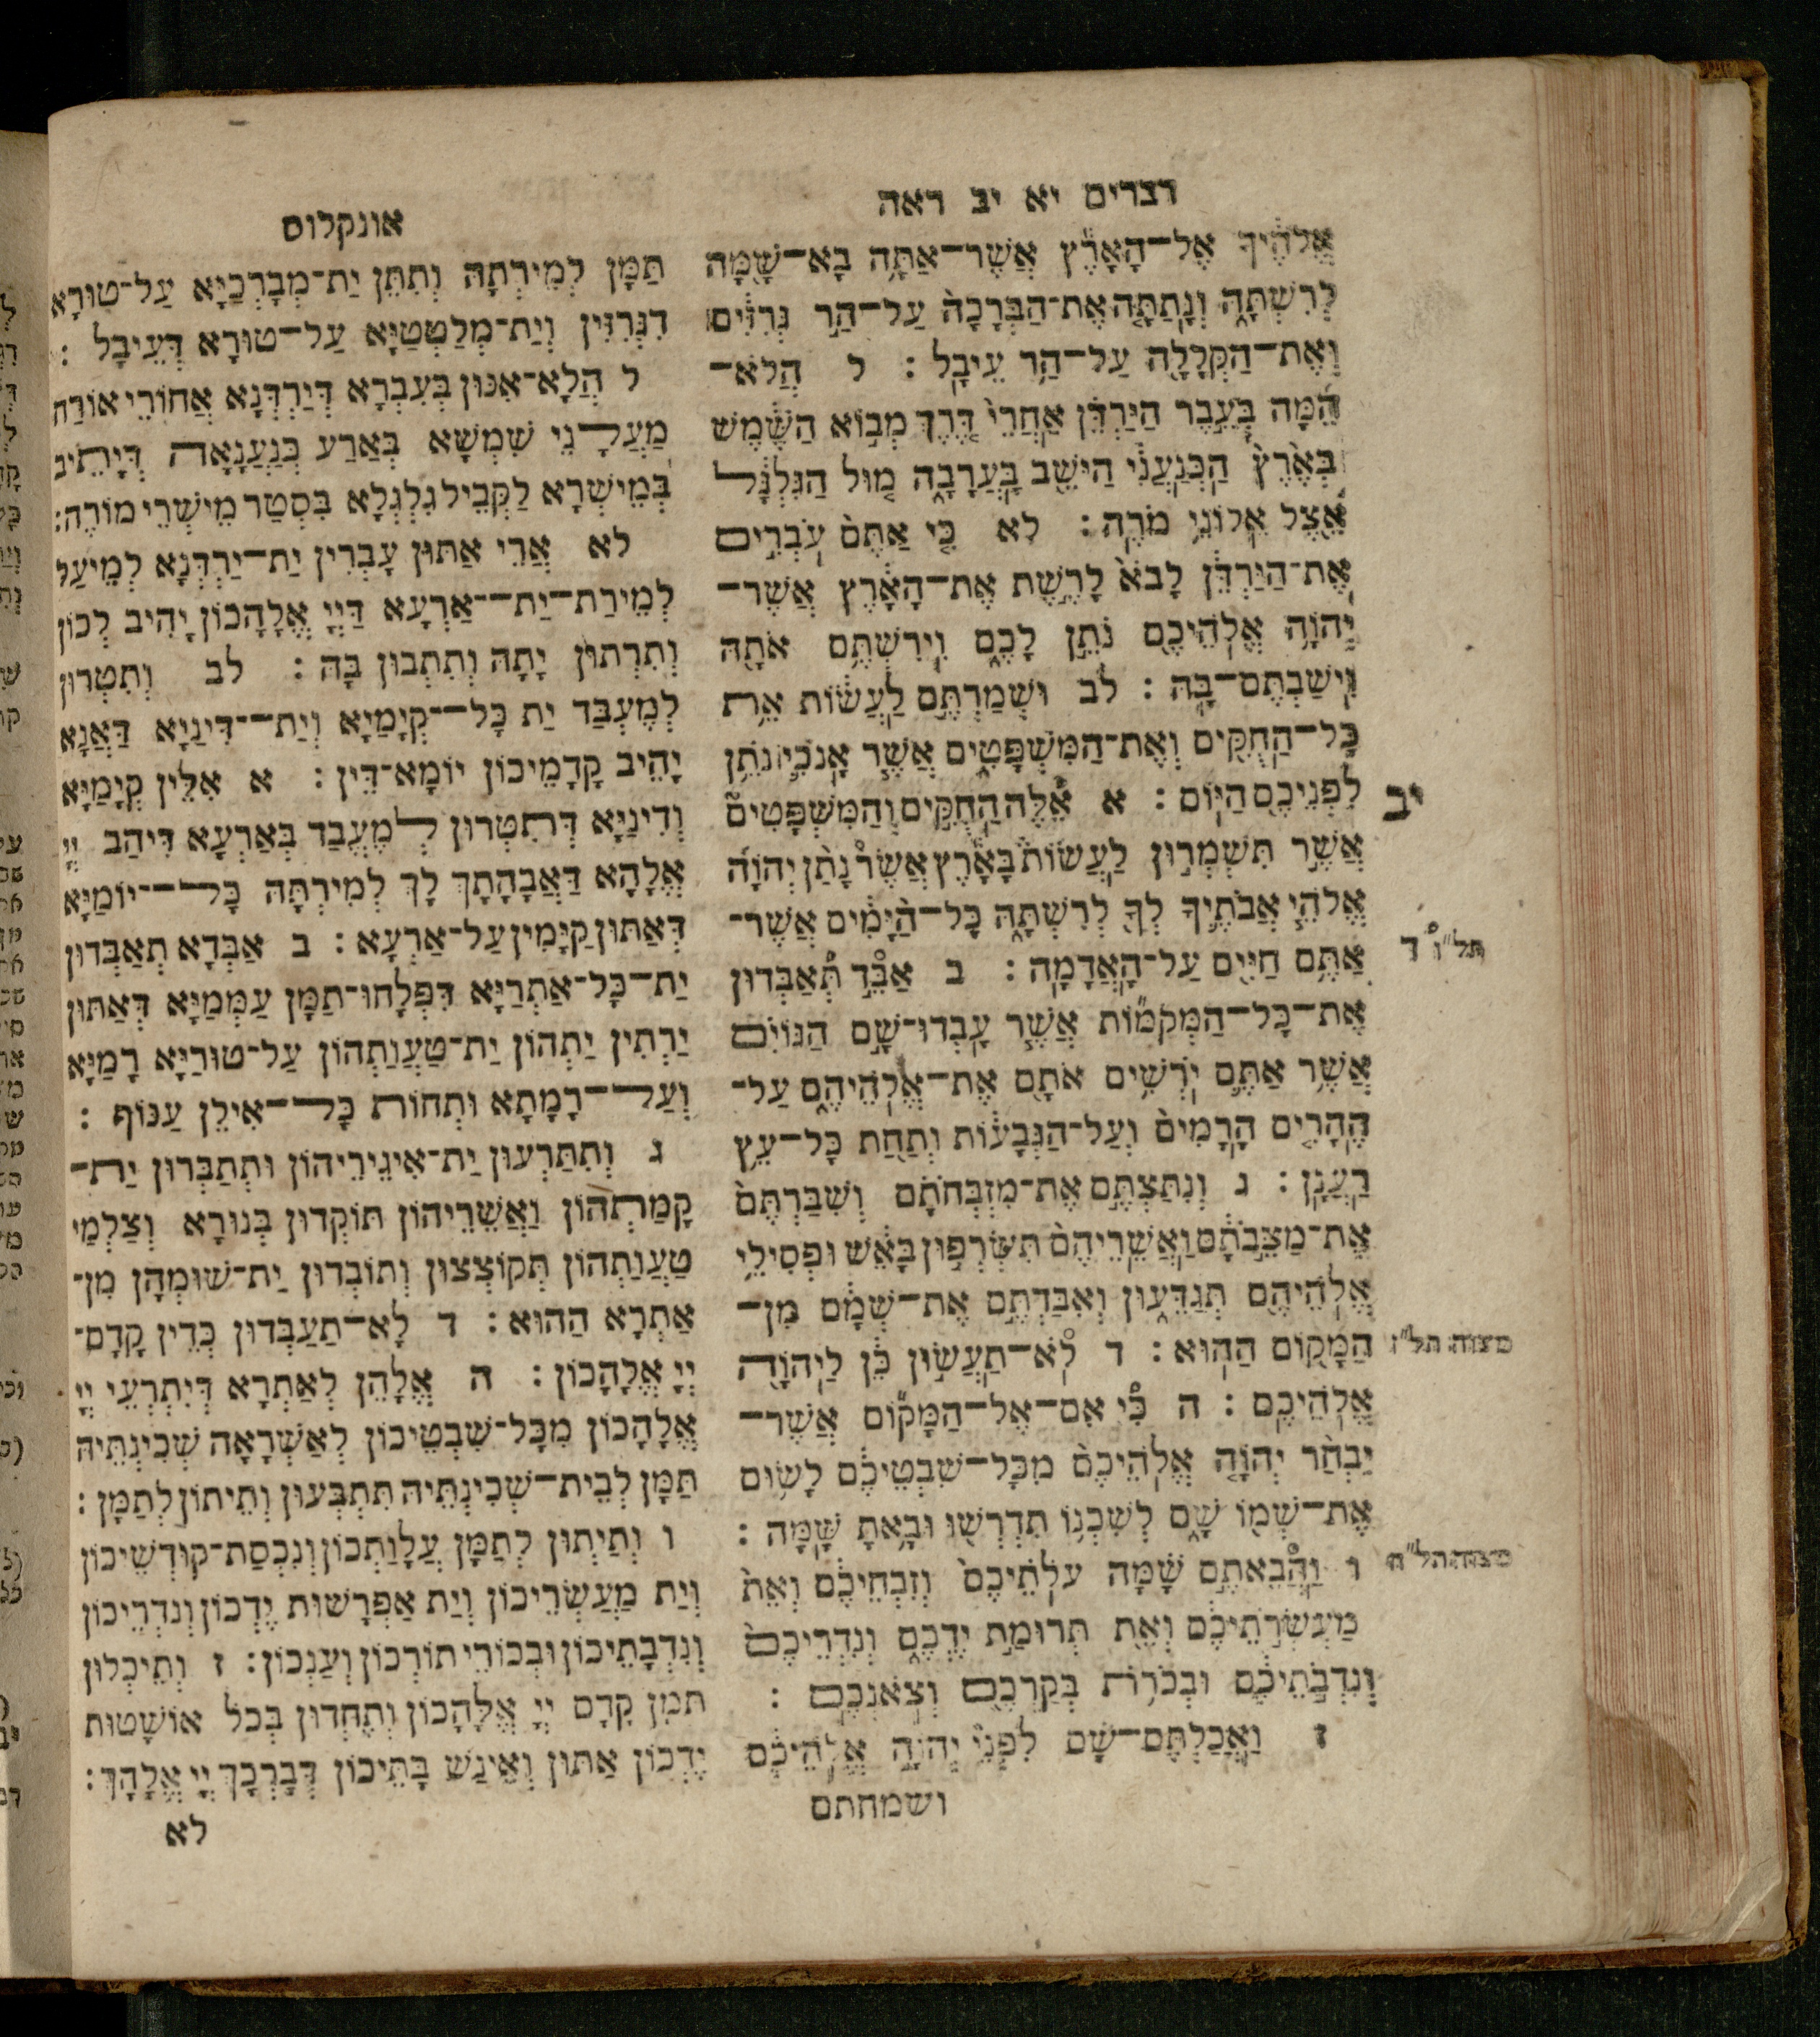 דברים יא יב ראה
אֱלֹהֶיךָ אֶל־הָאָרֶץ אֲשֶׁר־אַתָּה בָא־שָׁמָּה
לְרִשְׁתָּהּ וְנָתַתָּה אֶת־הַבְּרָכָה עַל־הַר גְּרִזִּים
וְאֶת־הַקְּלָלָה עַל־הַר עֵיבָל : ל הֲלֹא־
הֵמָּה בְּעֵבֶר הַיַּרְדֵּן אַחֲרֵי דֶּרֶךְ מְבוֹא הַשֶּׁמֶשׁ
בְּאֶרֶץ הַכְּנַעֲנִי הַיֹּשֵׁב בָּעֲרָבָה מוּל הַגִּלְגָּל
אֵצֶל אֵלוֹנֵי מֹרֶה : לא כִּי אַתֶּם עֹבְרִים
אֶת־הַיַּרְדֵּן לָבֹא לָרֶשֶׁת אֶת־הָאָרֶץ אֲשֶׁר־
יְהוָֹה אֱלֹהֵיכֶם נֹתֵן לָכֶם וִירִשְׁתֶּם אֹתָהּ
וִישַׁבְתֶּם־בָּהּ : לב וּשְׁמַרְתֶּם לַעֲשׂוֹת אֵת
כָּל־הַחֻקִּים וְאֶת־הַמִּשְׁפָּטִים אֲשֶׁר אָנֹכִי נֹתֵן
לִפְנֵיכֶם הַיּוֹם : א אֵלֶּה הַחֻקִּים וְהַמִּשְׁפָּטִים
אֲשֶׁר תִּשְׁמְרוּן לַעֲשׂוֹת בָּאָרֶץ אֲשֶׁר נָתַן יְהוָֹה
אֱלֹהֵי אֲבֹתֶיךָ לְךָ לְרִשְׁתָּהּ כָּל־הַיָּמִים אֲשֶׁר־
אַתֶּם חַיִּים עַל־הָאֲדָמָה : ב אַבֵּד תְּאַבְּדוּן
אֶת־כָּל־הַמְּקֹמוֹת אֲשֶׁר עָבְדוּ־שָׁם הַגּוֹיִם
אֲשֶׁר אַתֶּם יֹרְשִׁים אֹתָם אֶת־אֱלֹהֵיהֶם עַל־
הֶהָרִים הָרָמִים וְעַל־הַגְּבָעוֹת וְתַחַת כָּל־עֵץ
רַעֲנָן : ג וְנִתַּצְתֶּם אֶת־מִזְבְּחֹתָם וְשִׁבַּרְתֶּם
אֶת־מַצֵּבֹתָם וַאֲשֵׁרֵיהֶם תִּשְׂרְפוּן בָּאֵשׁ וּפְסִילֵי
אֱלֹהֵיהֶם תְּגַדֵּעוּן וְאִבַּדְתֶּם אֶת־שְׁמָם מִן־
הַמָּקוֹם הַהוּא : ד לֹא־תַעֲשׂוּן כֵּן לַיהוָֹה
אֱלֹהֵיכֶם : ה כִּי אִם־אֶל־הַמָּקוֹם אֲשֶׁר־
יִבְחַר יְהוָֹה אֱלֹהֵיכֶם מִכָּל־שִׁבְטֵיכֶם לָשׂוּם
אֶת־שְׁמוֹ שָׁם לְשִׁכְנוֹ תִדְרְשׁוּ וּבָאתָ שָּׁמָּה :
ו וַהֲבֵאתֶם שָׁמָּה עֹלֹתֵיכֶם וְזִבְחֵיכֶם וְאֵת
מַעְשְׂרֹתֵיכֶם וְאֵת תְּרוּמַת יֶדְכֶם וְנִדְרֵיכֶם
וְנִדְבֹתֵיכֶם וּבְכֹרֹת בְּקַרְכֶם וְצֹאנְכֶם :
ז וַאֲכַלְתֶּם־שָׁם לִפְנֵי יְהוָֹה אֱלֹהֵיכֶם
ושמחתם
יב
תל"ו ד
מצוה תל"ז
מצוה תל"ח
אונקלוס
תַּמָּן לְמֵירְתָהּ וְתִתֵּן יַת־מְבָרְכַיָּא עַל־טוּרָא
דִגְרִזִּין וְיַת־מְלַטְטַיָּא עַל־טוּרָא דְּעֵיבָל :
ל הֲלָא־אִנּוּן בְּעִבְרָא דְיַרְדְּנָא אֲחוֹרֵי אוֹרַח
מַעֲלָנֵי שִׁמְשָׁא בְּאַרַע כְּנַעֲנָאָה דְּיָתֵיב
בְּמֵישְׁרָא לָקֳבֵיל גִּלְגְּלָא בִּסְטַר מֵישְׁרֵי מוֹרֶה:
לא אֲרֵי אַתּוּן עָבְרִין יַת־יַרְדְּנָא לְמֵיעַל
לְמֵירַת־יַת־אַרְעָא דַּיְיָ אֱלָהָכוֹן יָהִיב לְכוֹן
וְתֵרְתוּן יָתָהּ וְתִתְבוּן בָּהּ : לב וְתִטְּרוּן
לְמֶעְבַּד יַת כָּל־קְיָמַיָּא וְיַת־דִּינַיָּא דַּאֲנָא
יָהֵיב קָדָמֵיכוֹן יוֹמָא־דֵין : א אִלֵּין קְיָמַיָּא
וְדִינַיָּא דְּתִטְּרוּן לְמֶעְבַּד בְּאַרְעָא דִּיהַב יְיָ
אֱלָהָא דַּאֲבָהָתָךְ לָךְ לְמֵירְתָהּ כָּל־יוֹמַיָּא
דְּאַתּוּן קַיָּמִין עַל־אַרְעָא : ב אַבְּדָא תְאַבְּדוּן
יַת־כָּל־אַתְרַיָּא דִּפְלָחוּ־תַמָּן עַמְמַיָּא דְּאַתּוּן
יַרְתִין יַתְהוֹן יַת־טַעֲוַתְהוֹן עַל־טוּרַיָּא רָמַיָּא
וְעַל־רָמָתָא וּתְחוֹת כָּל־אִילֵן עַנּוֹף :
ג וְתִתַּרְעוּן יַת־אִיגוֹרֵיהוֹן וּתְתַבְּרוּן יַת־
קָמַתְהוֹן וַאֲשֵׁרֵיהוֹן תּוֹקְדוּן בְּנוּרָא וְצַלְמֵי
טַעֲוַתְהוֹן תְּקוֹצְצוּן וְתוֹבְדוּן יַת־שׁוּמְהָן מִן־
אַתְרָא הַהוּא : ד לָא־תַעַבְּדוּן כְּדֵין קֳדָם־
יְיָ אֱלָהָכוֹן : ה אֱלָהֵן לְאַתְרָא דְּיִתְרְעֵי יְיָ
אֱלָהָכוֹן מִכָּל־שִׁבְטֵיכוֹן לְאַשְׁרָאָה שְׁכִינְתֵּיהּ
תַּמָּן לְבֵית־שְׁכִינְתֵּיהּ תִּתְבְּעוּן וְתֵיתוֹן לְתַמָּן :
ו וְתַיְתוּן לְתַמָּן עֲלָוַתְכוֹן וְנִכְסַת־קוּדְשֵׁיכוֹן
וְיַת מַעְשְׂרֵיכוֹן וְיַת אַפְרָשׁוּת יֶדְכוֹן וְנִדְרֵיכוֹן
וְנִדְבָתֵיכוֹן וּבְכוֹרֵי תוֹרְכוֹן וְעַנְכוֹן : ז וְתֵיכְלוּן
תַּמָּן קֳדָם יְיָ אֱלָהָכוֹן וְתֶחְדוּן בְּכֹל אוֹשָׁטוּת
יֶדְכוֹן אַתּוּן וְאֱינַשׁ בָּתֵּיכוֹן דְּבָרְכָךְ יְיָ אֱלָהָךְ :
לא